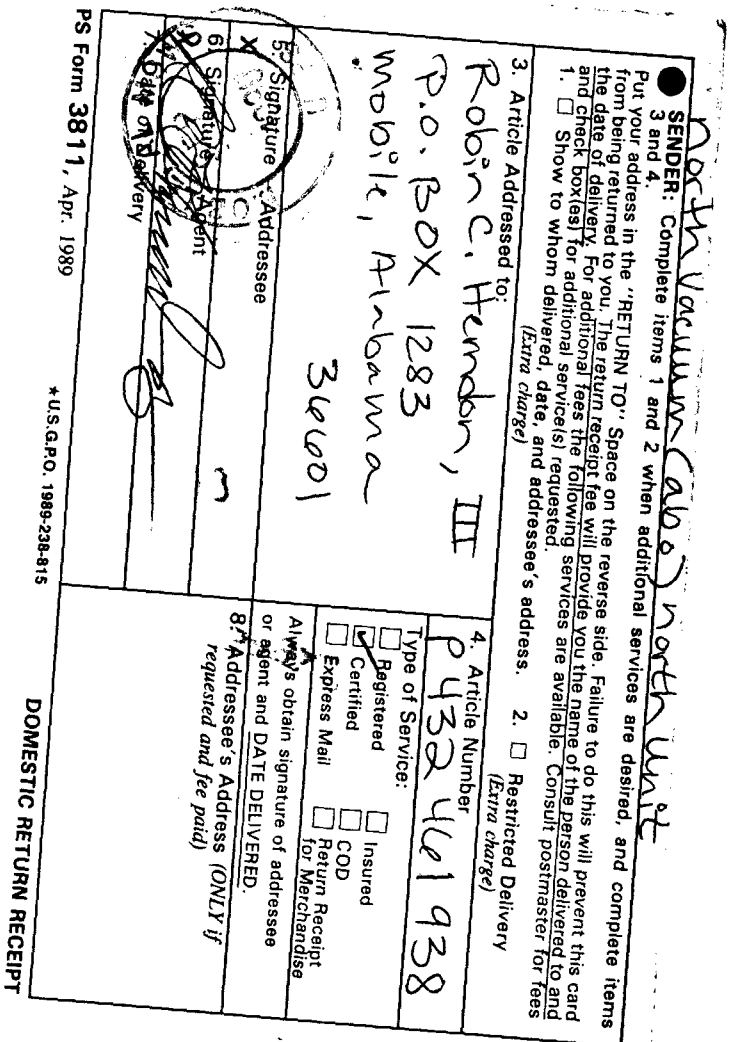 north Vacuum (abo) north Unit
SENDER: Complete items 1 and 2 when additional services are desired, and complete items
3 and 4.
Put your address in the "RETURN TO" Space on the reverse side. Failure to do this will prevent this card
from being returned to you. The return receipt fee will provide you the name of the person delivered to and
the date of delivery. For additional fees the following services are available. Consult postmaster for fees
and check box(es) for additional service(s) requested.
1. ☐ Show to whom delivered, date, and addressee's address. 2. ☐ Restricted Delivery
(Extra charge) (Extra charge)
3. Article Addressed to:
Robin C. Herndon, III
P.O. BOX 1283
Mobile, Alabama
36601
4. Article Number
P 432 461 938
Type of Service:
☐ Registered ☐ Insured
☑ Certified ☐ COD
☐ Express Mail ☐ Return Receipt for Merchandise
Always obtain signature of addressee
or agent and DATE DELIVERED.
5. Signature Addressee
X
6. Signature Agent
7. Date of Delivery
8. Addressee's Address (ONLY if
requested and fee paid)
PS Form 3811, Apr. 1989
★ U.S.G.P.O. 1989-238-815
DOMESTIC RETURN RECEIPT